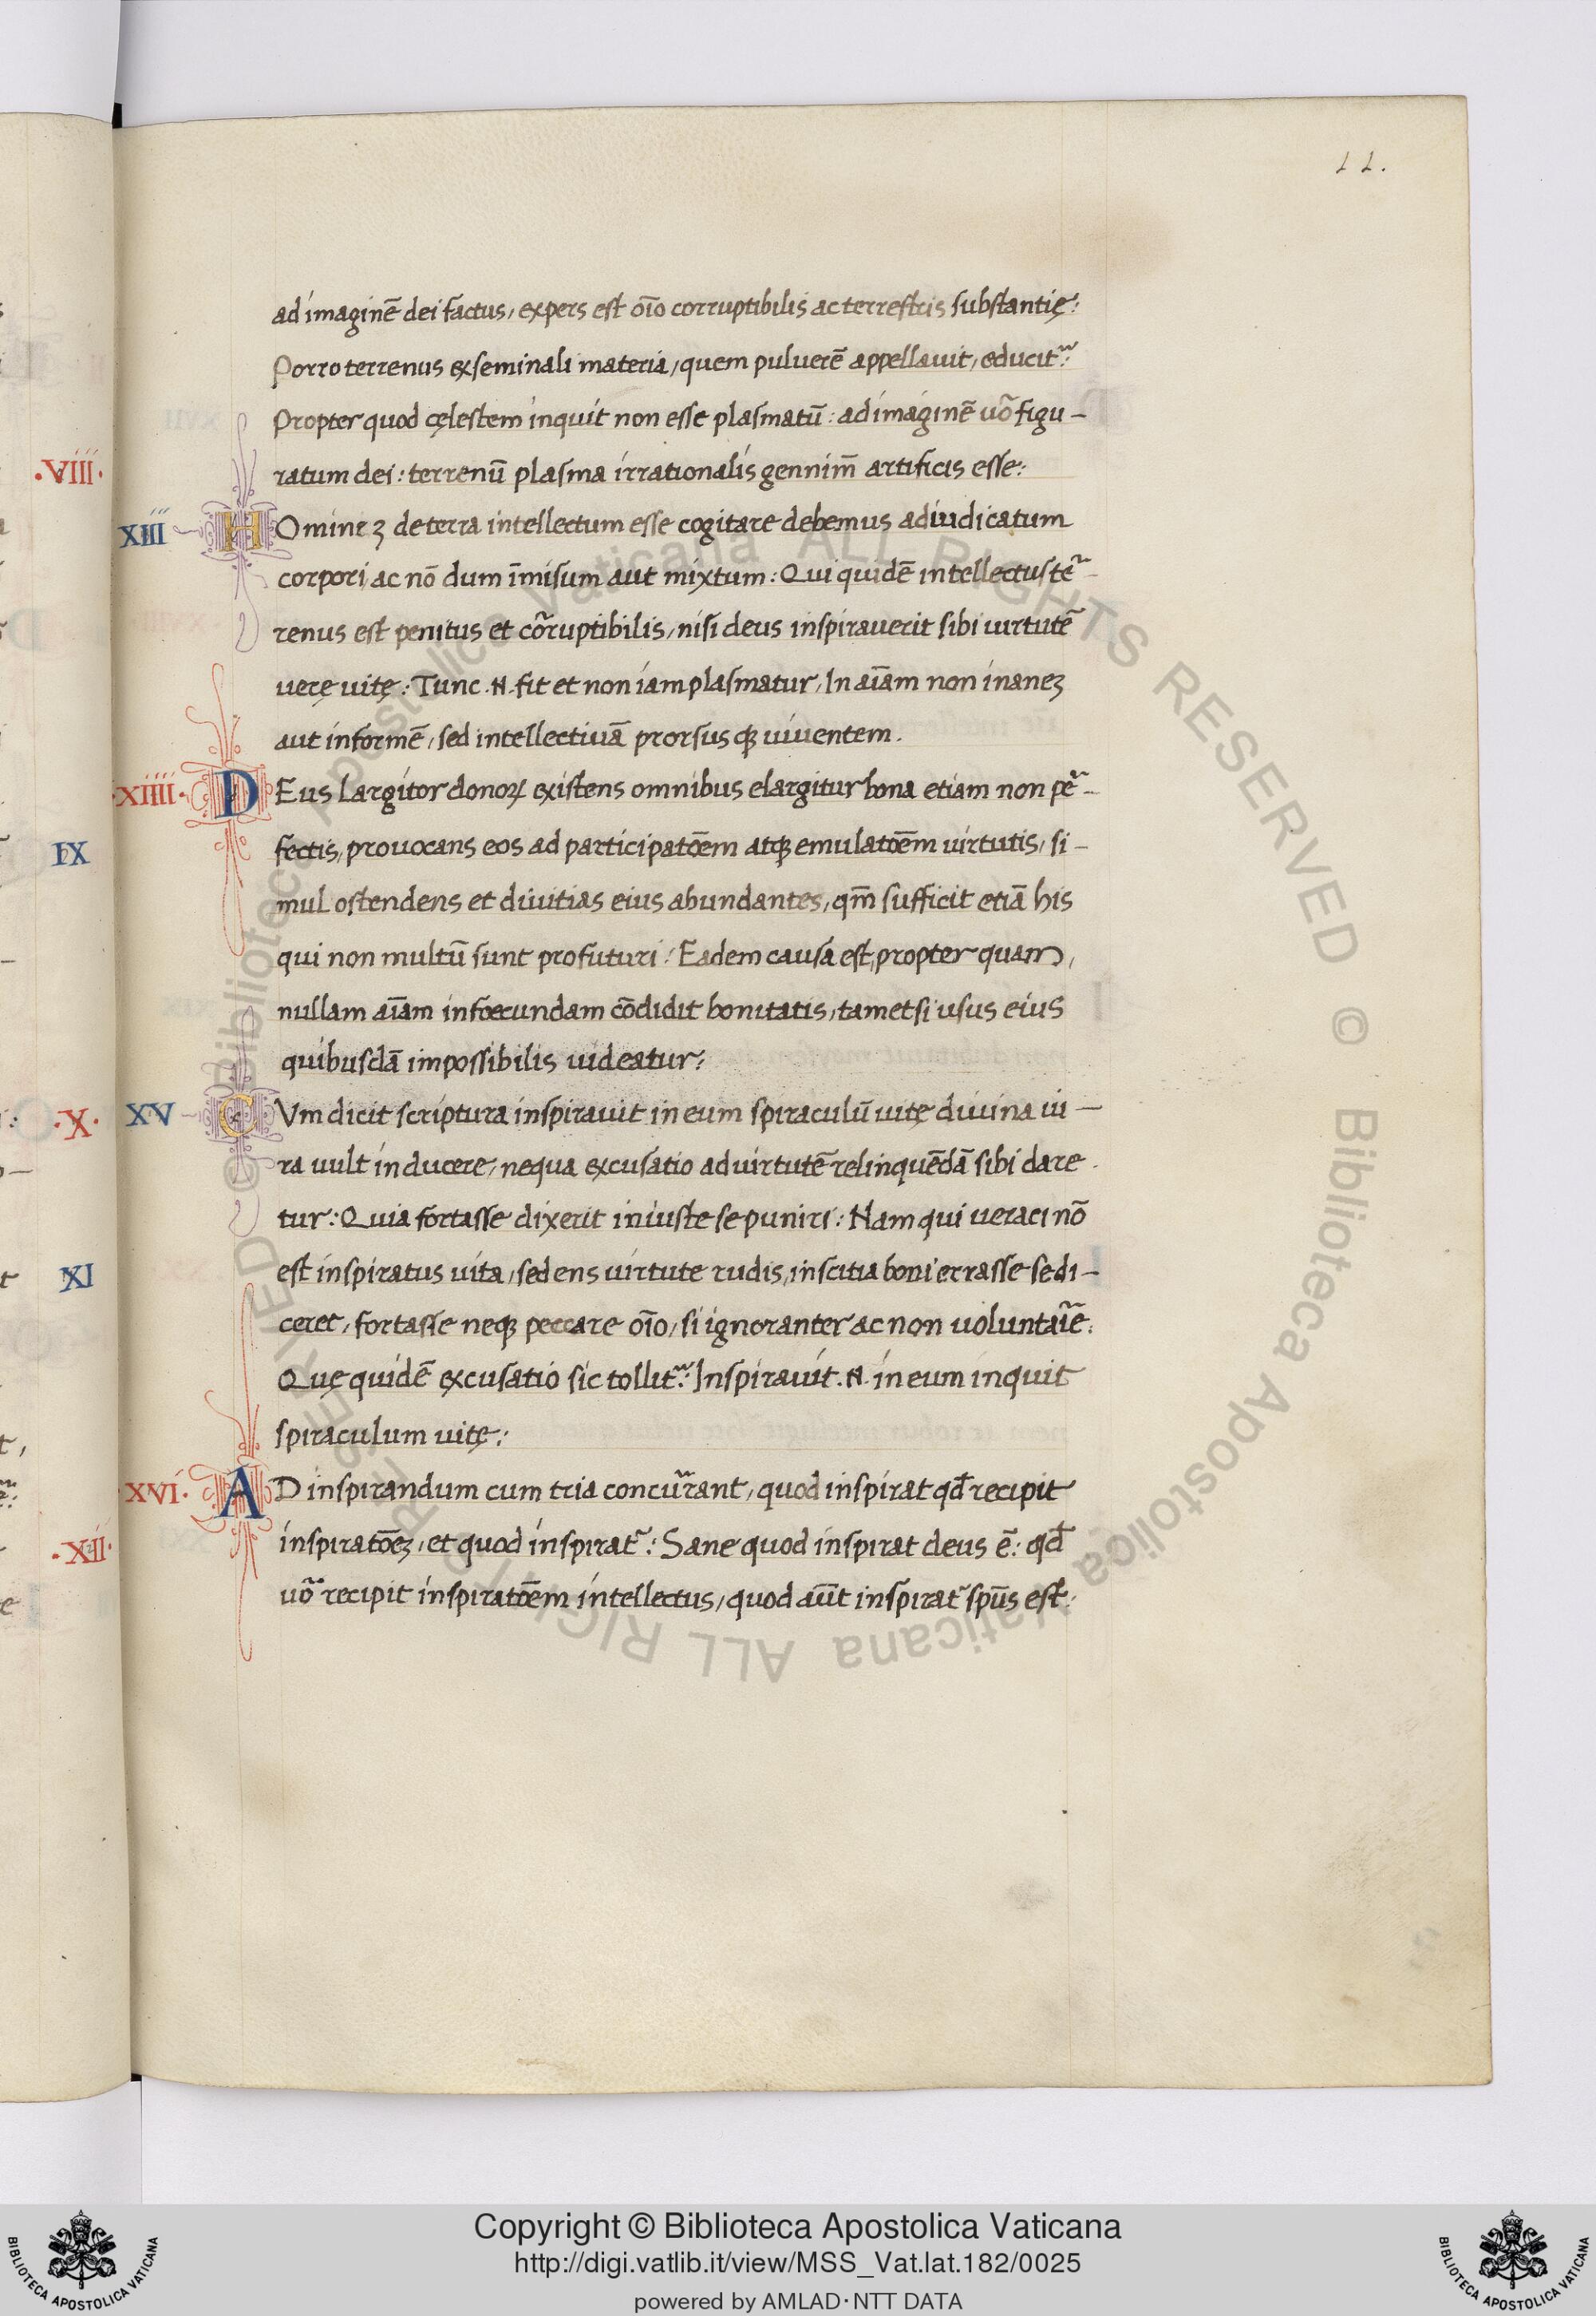 11.
ad imaginē dei factus, expers est oīo corruptibilis ac terrestris substantię:
Porro terrenus ex seminali materia, quem puluerē appellauit, educit᷑:
Propter quod cęlestem inquit non esse plasmatū: ad imaginē uō figu-
ratum dei: terrenū plasma irrationalis gennim̄ artificis esse:
.VIII.
XIII HOmineꝫ de terra intellectum esse cogitare debemus adiudicatum
corpori ac nō dum īmisum aut mixtum: Qui quidē intellectus tē-
renus est penitus et cōruptibilis, nisi deus inspirauerit sibi uirtutē
uerę uitę: Tunc .N. fit et non iam plasmatur, In aīam non inaneꝫ
aut informē, sed intellectiuā prorsus qꝫ uiuentem.
.XIIII. DEus Largitor donoꝝ existens omnibus elargitur bona etiam non pē-
IX
fectis, prouocans eos ad participatōem atqꝫ emulatōem uirtutis, si-
mul ostendens et diuitias eius abundantes, qm̄ sufficit etiā his
qui non multū sunt profuturi: Eadem causa est, propter quam,
nullam aīam infoecundam cōdidit bonitatis, tametsi usus eius
quibusdā impossibilis uideatur:
.X.
XV CVm dicit scriptura inspirauit in eum spiraculū uitę diuina iu-
ra uult inducere, nequa excusatio ad uirtutē relinquēdā sibi dare
tur: Quia fortasse dixerit iniuste se puniri: Nam qui ueraci nō
XI
est inspiratus uita, sed ens uirtute rudis, inscitia boni errasse se di-
ceret, fortasse neqꝫ peccare oīo, si ignoranter ac non voluntaīe:
Quę quidē excusatio sic tollit᷑: Inspirauit .N. in eum inquit
spiraculum uitę:
XVI. AD inspirandum cum tria concūrant, quod inspirat qđ recipit
.XII.
inspiratōeꝫ, et quod inspirat᷑: Sane quod inspirat deus ē: qđ
uō recipit inspiratōem intellectus, quod aūt inspirat᷑ spūs est:
© Biblioteca Apostolica Vaticana ALL RIGHTS RESERVED © Biblioteca Apostolica Vaticana ALL RIGHTS RESERVED
BIBLIOTECA APOSTOLICA VATICANA
Copyright © Biblioteca Apostolica Vaticana
http://digi.vatlib.it/view/MSS_Vat.lat.182/0025
powered by AMLAD·NTT DATA
BIBLIOTECA APOSTOLICA VATICANA